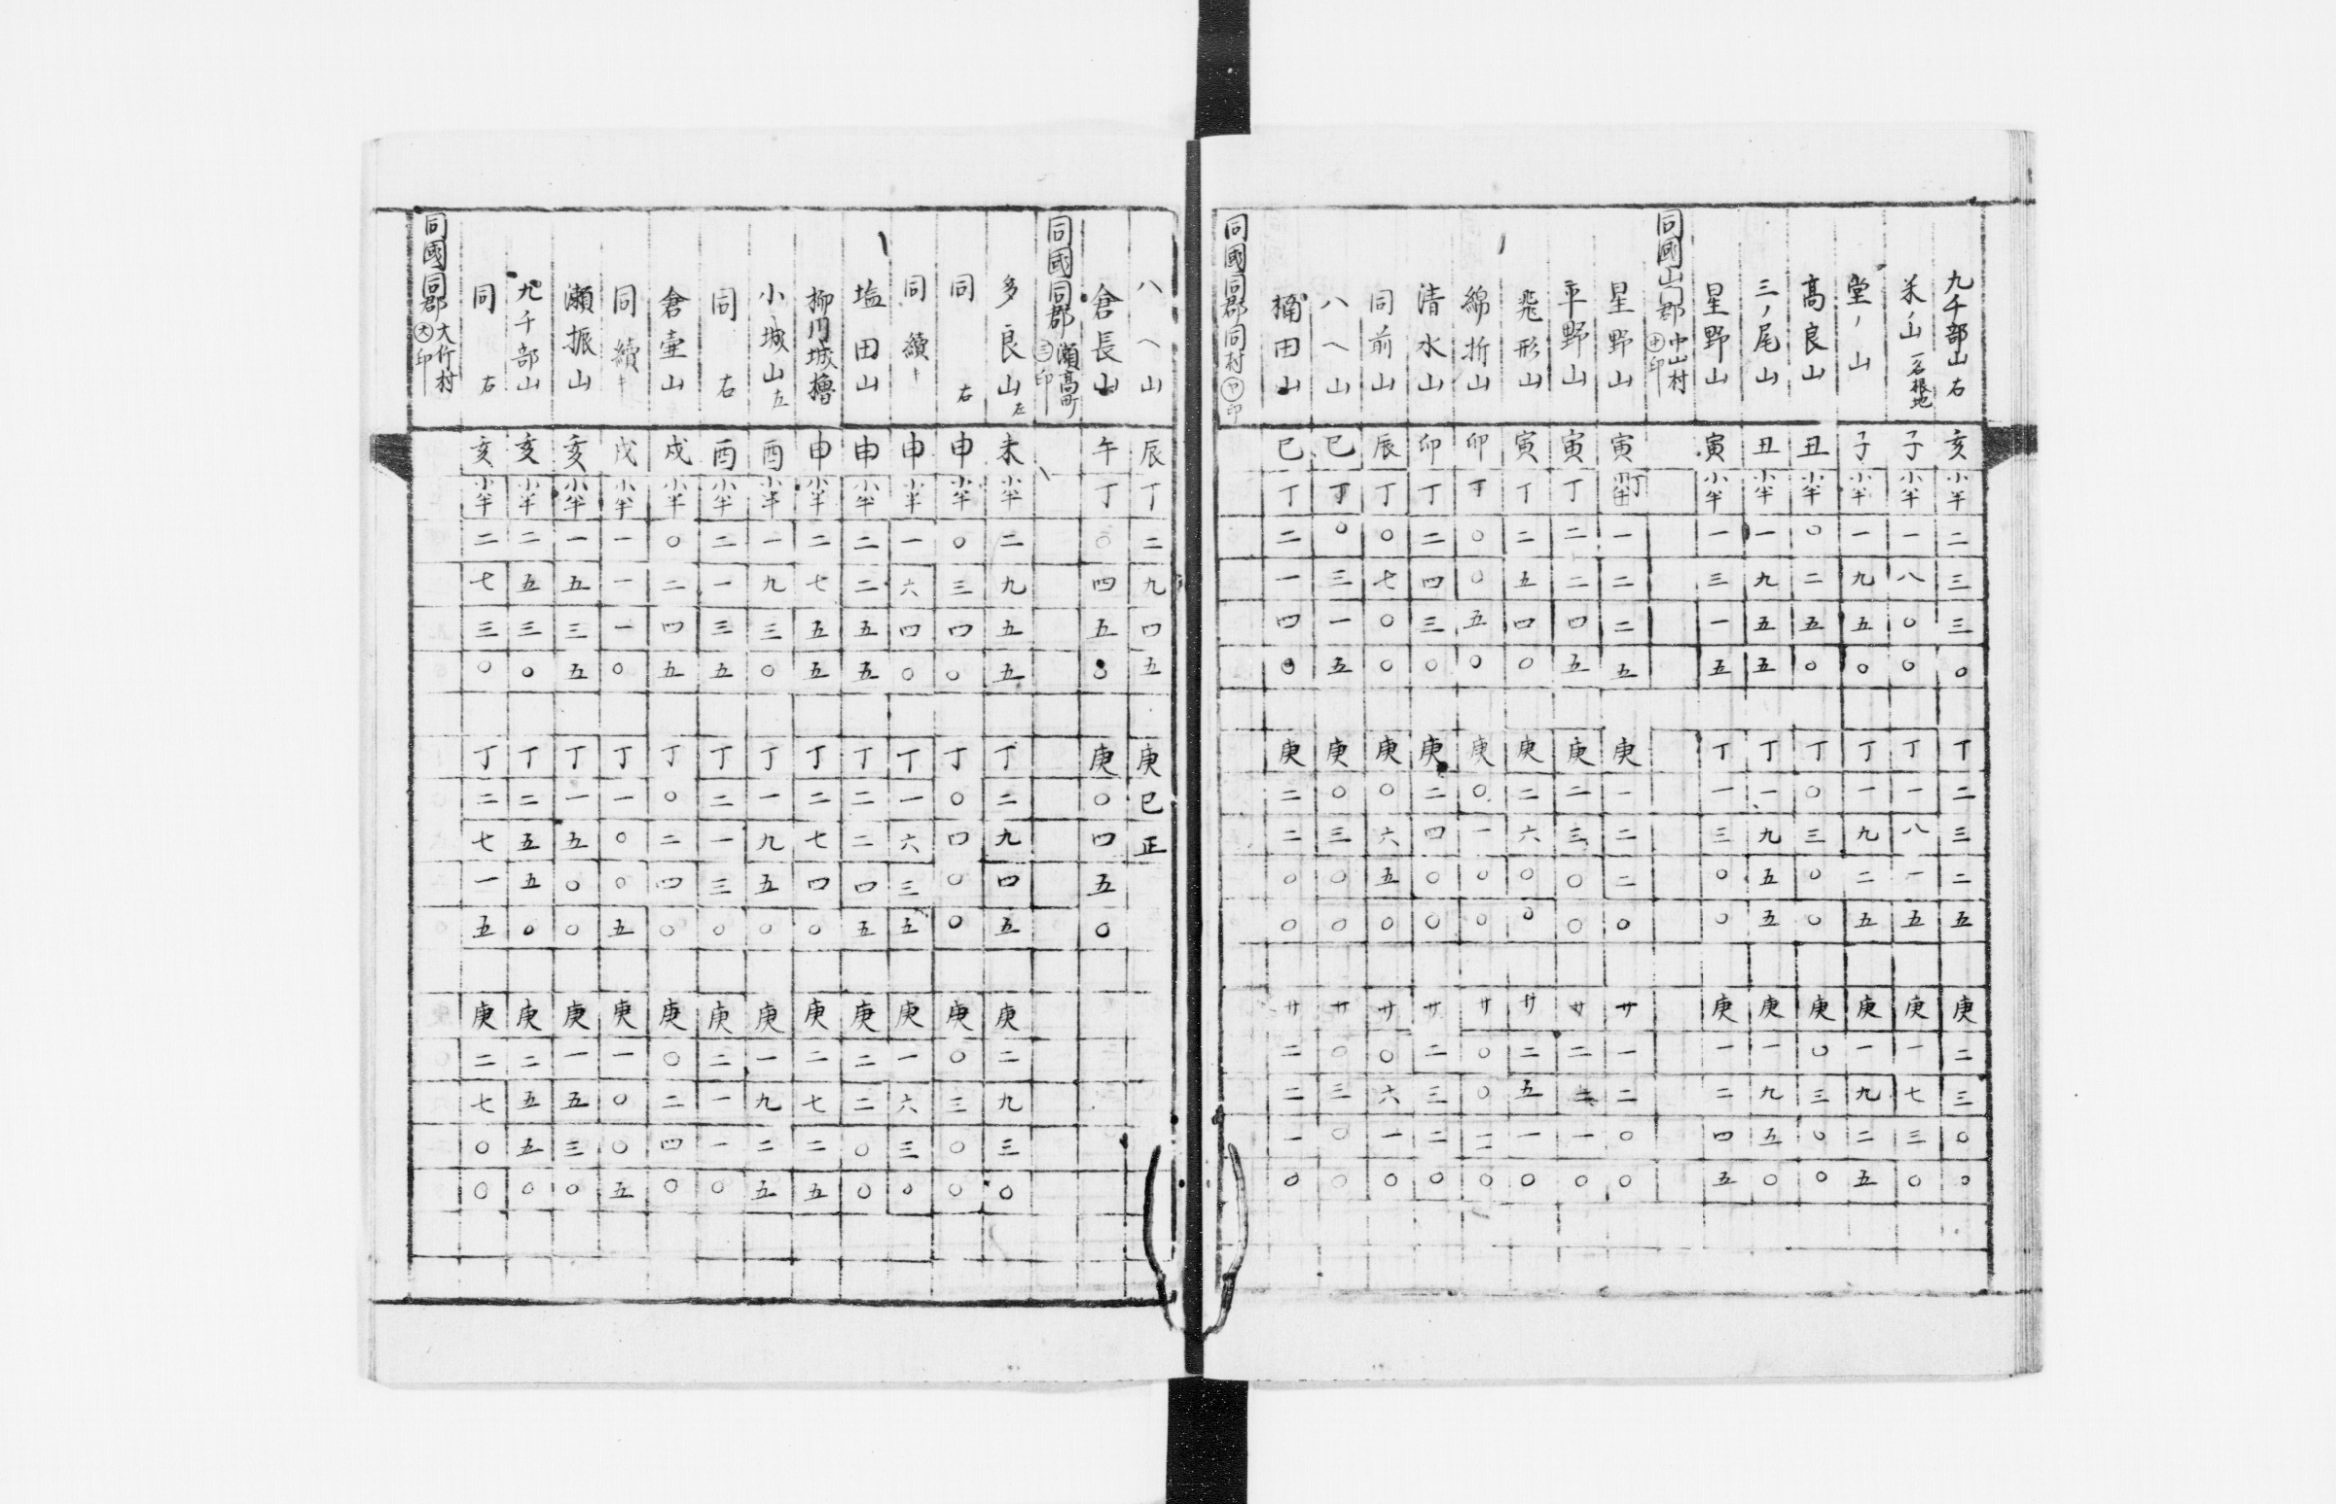 九千部山右 亥 小半 二 三 三 〇 丁 二 三 二 五 庚 二 三 〇 〇
山 一名根地 子 小半 一 八 〇 〇 丁 一 八 一 五 庚 一 七 三 〇
堂ノ山 子 小半 一 九 五 〇 丁 一 九 二 五 庚 一 九 二 五
高良山 丑 小半 〇 二 五 〇 丁 〇 三 〇 〇 庚 〇 三 〇 〇
三ノ尾山 丑 小半 一 九 五 五 丁 一 九 五 五 庚 一 九 五 〇
星野山 寅 小半 一 三 一 五 丁 一 三 〇 〇 庚 一 二 四 五
同國山門郡中山村 ㊥印
星野山 寅 丁 一 二 二 五 庚 一 二 二 〇 サ 一 二 〇 〇
平野山 寅 丁 二 二 四 五 庚 二 三 〇 〇 サ 二 一 〇
飛形山 寅 丁 二 五 四 〇 庚 二 六 〇 〇 サ 二 五 一 〇
綿折山 卯 丁 〇 〇 五 〇 庚 〇 一 〇 〇 サ 〇 〇 二 〇
清水山 卯 丁 二 四 三 〇 庚 二 四 〇 〇 サ 二 三 二 〇
同前山 辰 丁 〇 七 〇 〇 庚 〇 六 五 〇 サ 〇 六 一 〇
八ヘ山 巳 丁 〇 三 一 五 庚 〇 三 〇 〇 サ 〇 三 〇 〇
桶田山 巳 丁 二 一 四 〇 庚 二 二 〇 〇 サ 二 二 一 〇
同國同郡同村 印
八ヘ山 辰 丁 二 九 四 五 庚 巳 正
倉長山 午 丁 〇 四 五 〇 庚 〇 四 五 〇
同國同郡瀬高町 ㊂印
多良山左 未 小半 二 九 五 五 丁 二 九 四 五 庚 二 九 三 〇
同右 申 小半 〇 三 四 〇 丁 〇 四 〇 〇 庚 〇 三 〇 〇
同續キ 申 小半 一 六 四 〇 丁 一 六 三 五 庚 一 六 三 〇
塩田山 申 小半 二 二 五 五 丁 二 二 四 五 庚 二 二 〇 〇
柳川城櫓 申 小半 二 七 五 五 丁 二 七 四 〇 庚 二 七 二 五
小城山左 酉 小半 一 九 三 〇 丁 一 九 五 〇 庚 一 九 二 五
同右 酉 小半 二 一 三 五 丁 二 一 三 〇 庚 二 一 一 〇
倉壷山 戌 小半 〇 二 四 五 丁 〇 二 四 〇 庚 〇 二 四 〇
同續キ 戌 小半 一 一 一 〇 丁 一 〇 〇 五 庚 一 〇 〇 五
瀬振山 亥 小半 一 五 三 五 丁 一 五 〇 〇 庚 一 五 三 〇
九千部山 亥 小半 二 五 三 〇 丁 二 五 五 〇 庚 二 五 五 〇
同右 亥 小半 二 七 三 〇 丁 二 七 一 五 庚 二 七 〇 〇
同國同郡大竹村 ㊅印